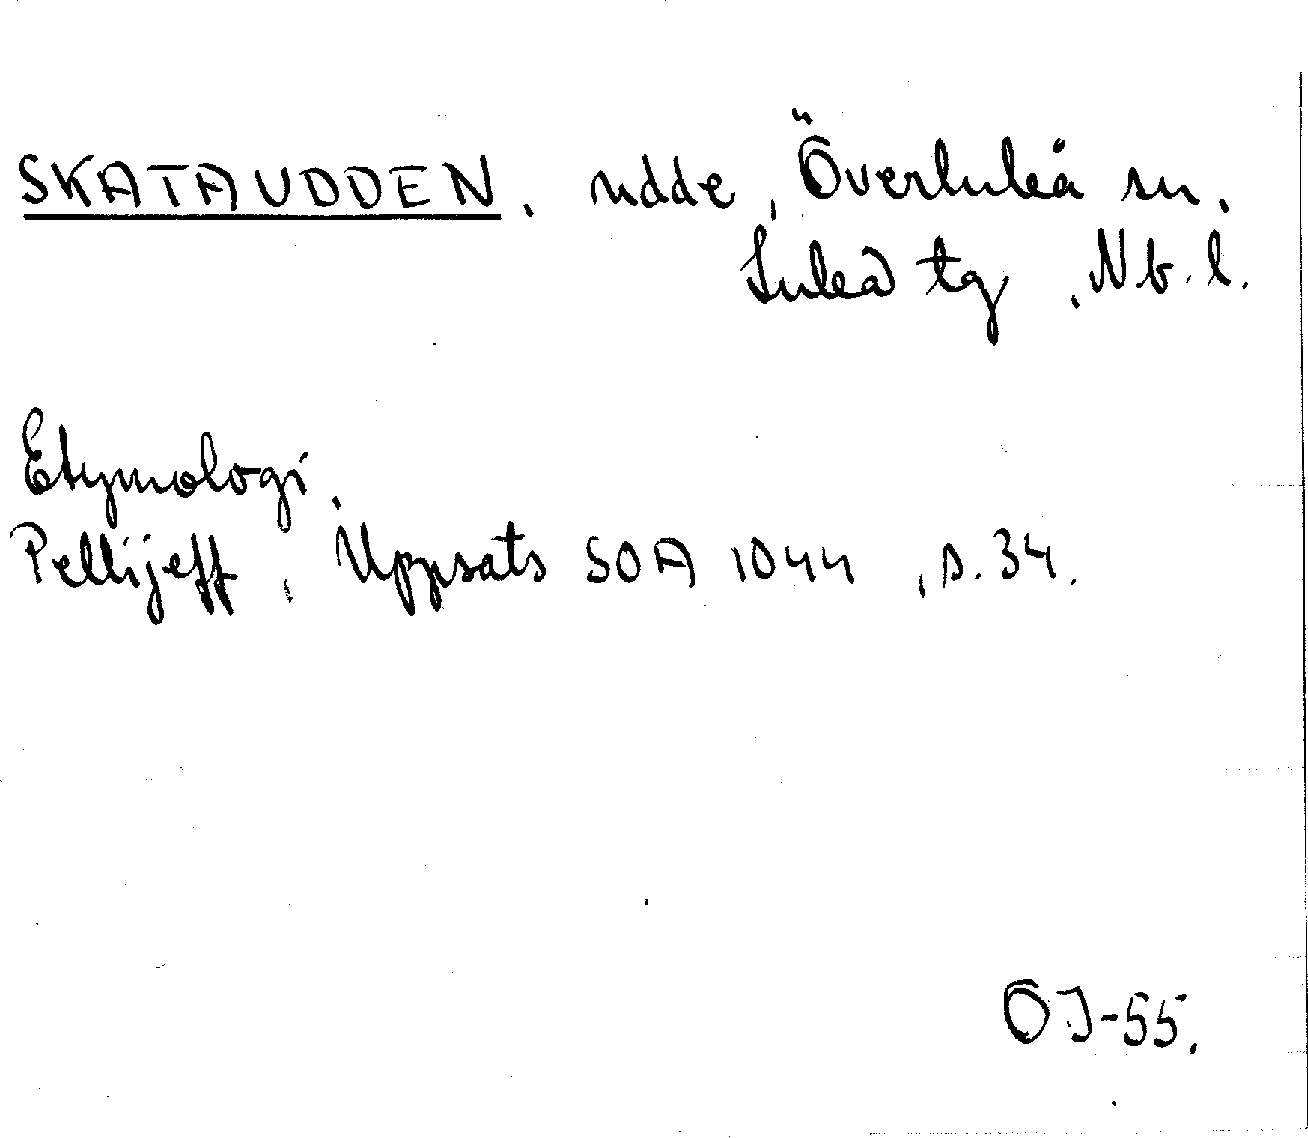 SKATAUDDEN, udde, Överluleå sn.
Luleå tg, Nb. l.
Etymologi.
Pellijeff, Uppsats SOA 1044, s. 34.
OJ-55.